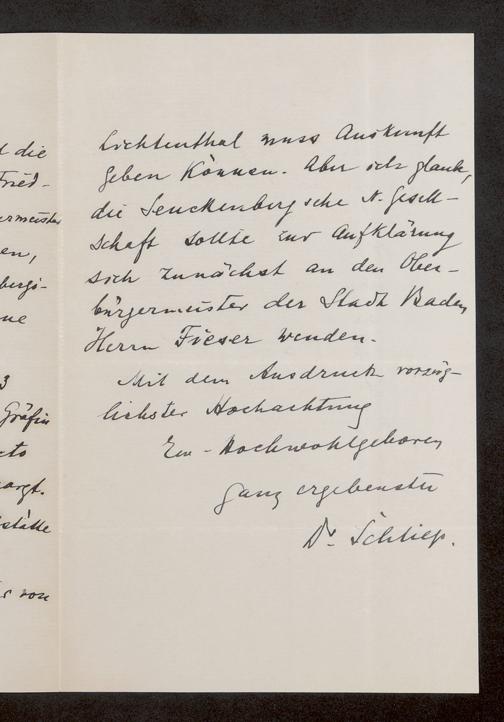 d die
Fried-
ermeister
en,
bergs-
ne
3
Gräfin
orgt.
stätte
von
Lichtenthal muss Auskunft
geben können. Aber ich glaube,
die Senckenbergsche N. Gesell-
schaft sollte zur Aufklärung
sich zunächst an den Ober-
bürgermeister der Stadt Baden
Herrn Fieser wenden.
Mit dem Ausdruck vorzüg-
lichster Hochachtung
Ew. Hochwohlgeboren
ganz ergebenster
Dr. Schliep.